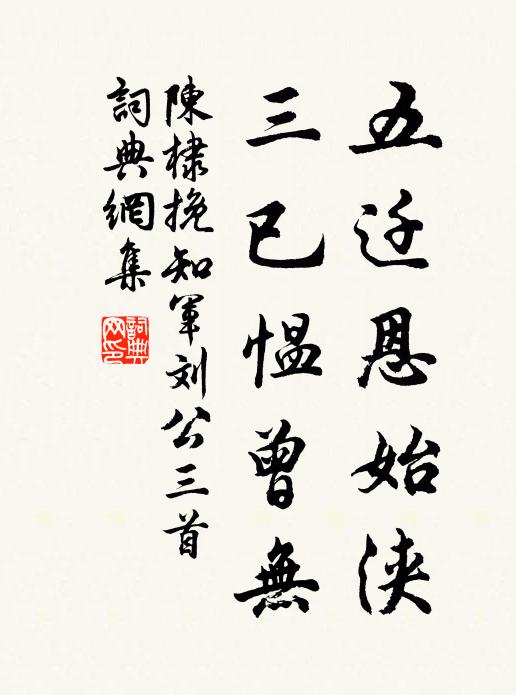 五迁恩始浃
三已愠曾無
陳棣挽知軍刘公三首
詞典網集
詞典
网印